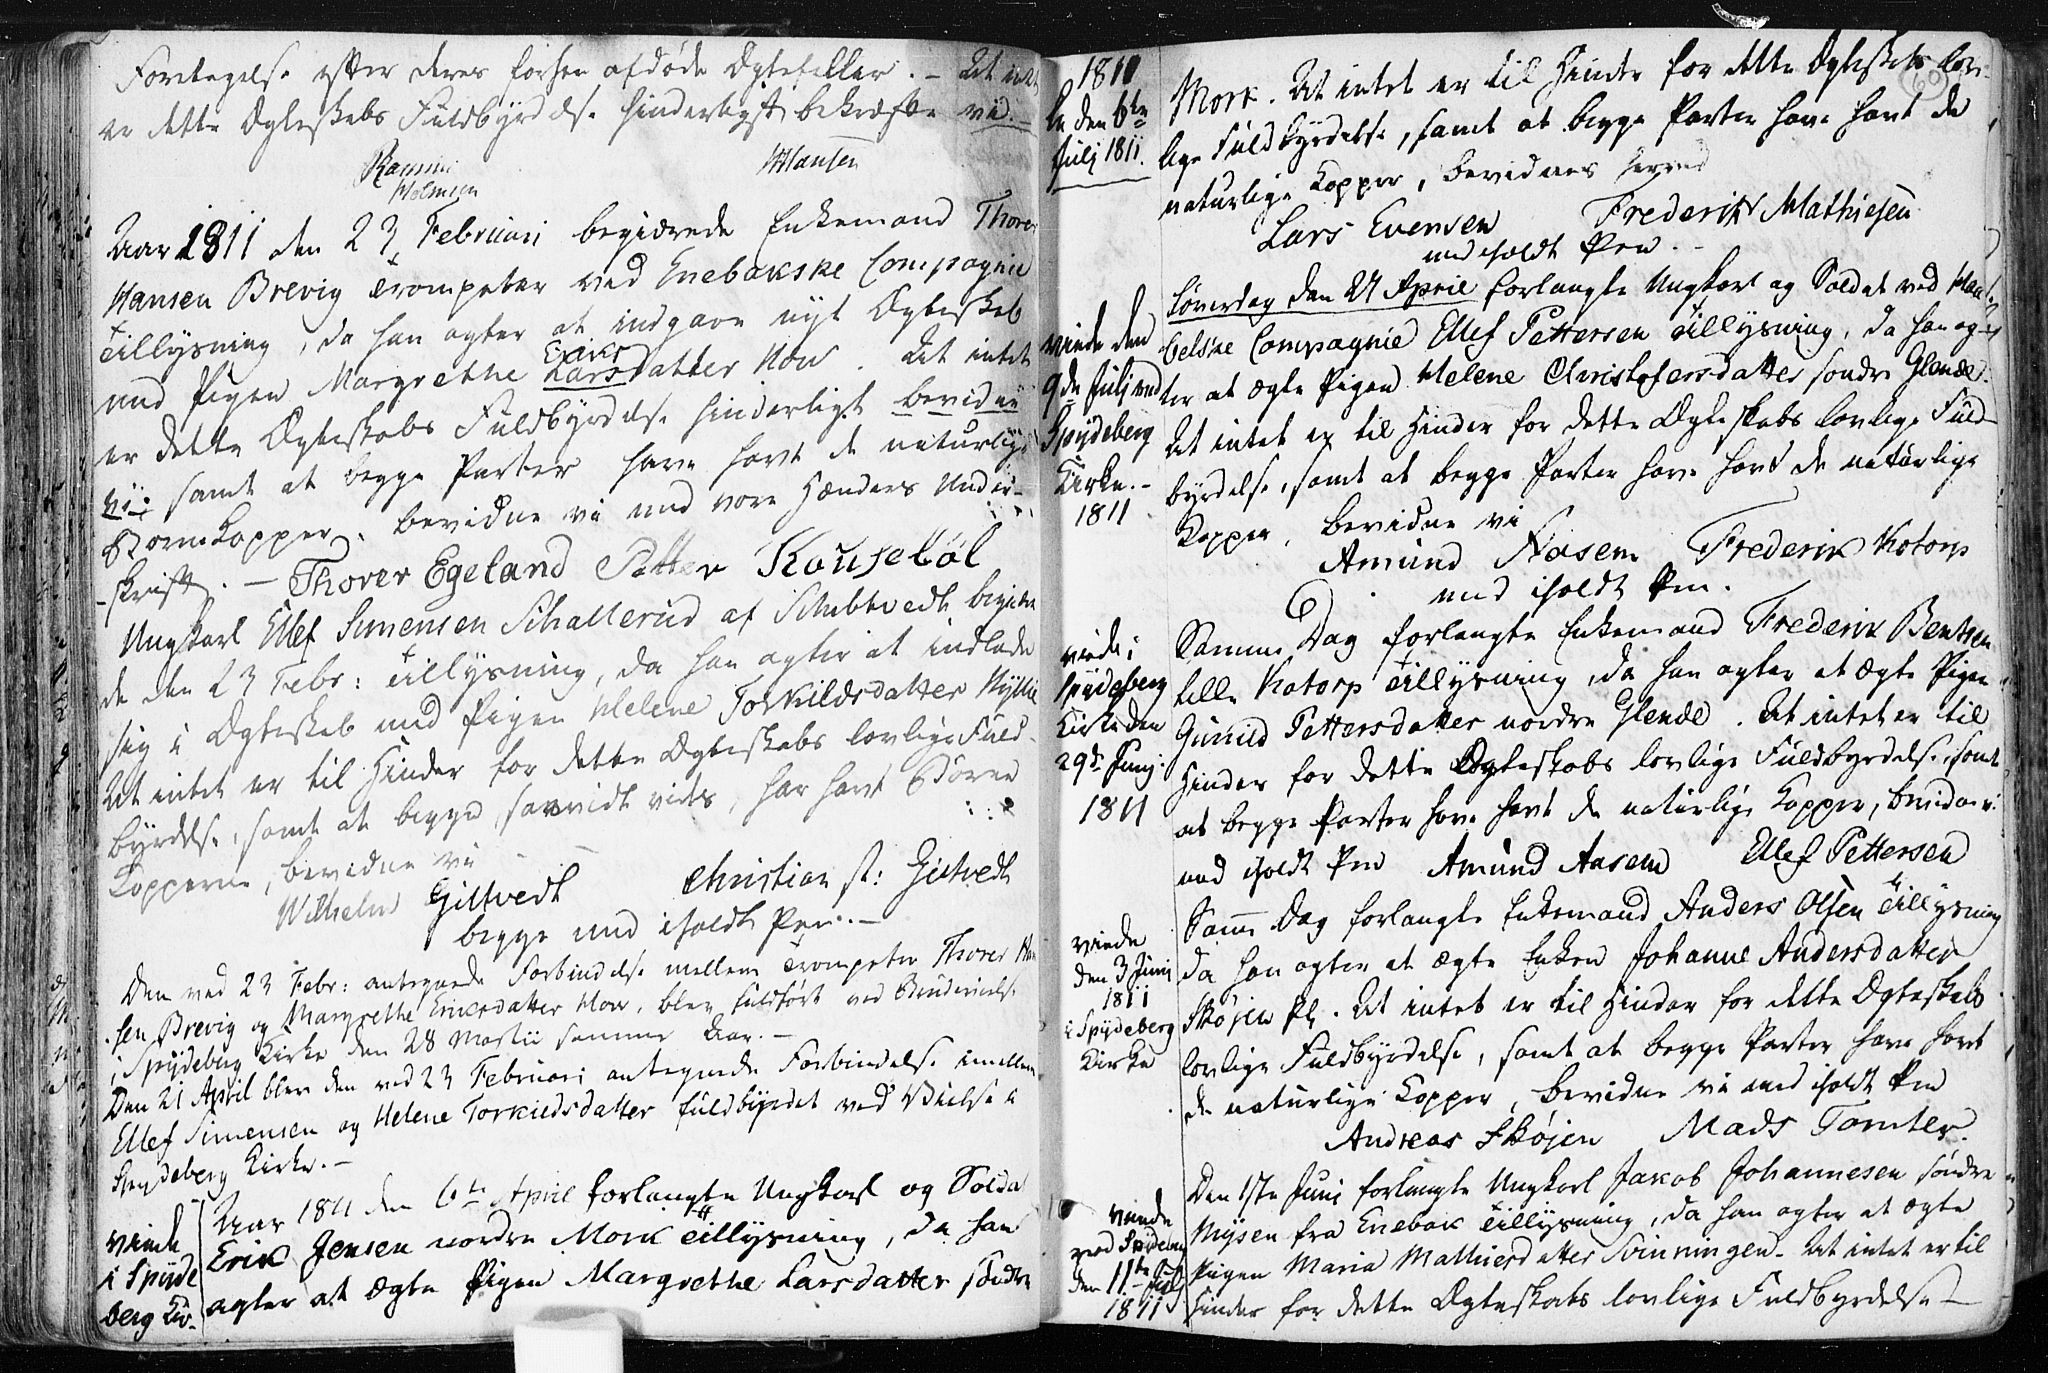 Foretagelse efter deres forhen afdøde Ægtefeller. – At intet
er dette Ægteskabs Fuldbyrdelse hinderligt bekræfte vi. –
Holmsen Hansen
Aar 1811 den 23 Februari begierede Enkemand Thorer
Hansen Brevig Trompeter ved Enebakske Compagnie
Tillysning, da han agter at indgaae nyt Ægteskab
med Pigen Margrethe Larsdatter Eriks How. At intet
er dette Ægteskabs Fuldbyrdelse hinderligt bevidne
vi; samt at begge Parter have havt de naturlige
Børnekopper, bevidne vi med vore Hænders Under-
-skrift. – Thorer Egeland Petter Kouseböl
Ungkarl Ellef Simensen Schallerud af Schibtvedt begiere
de den 23 Febr: Tillysning, da han agter at indlade
sig i Ægteskab med Pigen Helene Torkildsdatter
At intet er til Hinder for dette Ægteskabs lovlige Fuld-
byrdelse, samt at begge, saavidt vides, har havt Børne
Kopperne, bevidne vi
Wilhelm Giltvedt Christian st: Gistvedt
begge med iholdt Pen. –
Den ved 23 Febr: antegnede Forbindelse mellem Trompeter Thorer Han
sen Brevig og Margrethe Eriksdatter How, blev fuldført ved Brudevielse
i Spydeberg Kirke den 28 Martii samme Aar. –
Den 21 April blev den ved 23 Februari antegnede Forbindelse imellem
Ellef Simensen og Helene Torkildsdatter fuldbyrdet ved Vielse i
Spydeberg Kirke. –
viede
i Spyde
berg Kir-
Aar 1811 den 6te April forlangte Ungkarl og Soldat
Erik Jensen nordre Mork Tillysning, da han
agter at ægte Pigen Margrethe Larsdatter søndre
1811
ke den 6te
Julj 1811.
Mork. At intet er til Hinder for dette Ægteskabs lov-
lige Fuldbyrdelse, samt at begge Parter have havt de
naturlige Kopper, bevidnes herved
Lars Evensen Frederik Mathiesen
med iholdt Pen. –
viede den
9de Julj ved
Spydeberg
Kirke. –
1811
Løverdag den 27 April forlangte Ungkarl og Soldat ved
Compagnie Ellef Pettersen Tillysning, da han ag-
ter at ægte Pigen Helene Christofersdatter søndre Glende.
At intet er til Hinder for dette Ægteskabs lovlige Fuld-
byrdelse, samt at begge Parter have havt de naturlige
Kopper, bevidne vi
Amund Aasem Frederik Kotorp
med iholdt Pen.
viede i
Spydeberg
Kirke den
29de Junj:
1811
Samme Dag forlangte Enkemand Frederik Bentsen
lille Kotorp Tillysning, da han agter at ægte Pigen
Gunild Pettersdatter nordre Glende. At intet er til
Hinder for dette Ægteskabs lovlige Fuldbyrdelse, samt
at begge Parter have havt de naturlige Kopper, bevidne vi
med iholdt Pen Amund Aasem Ellef Pettersen
viede
den 3 Junj
1811
i Spydeberg
Kirke
Samme Dag forlangte Enkemand Anders Olsen Tillysning
da han agter at ægte Enken Johanne Andersdatter
Skøjen Pl. At intet er til Hinder for dette Ægteskabs
lovlige Fuldbyrdelse, samt at begge Parter have havt
de naturlige Kopper, bevidne vi med iholdt Pen
Andreas Skøjen Mads Tomter.
viede
ved Spydeberg
den 11te Julj
1811
Den 1ste Junj forlangte Ungkarl Jakob Johannesen søndre
Mysen fra Enebak Tillysning, da han agter at ægte
Pigen Maria Mathiesdatter Svinningen. At intet er til
Hinder for dette Ægteskabs lovlige Fuldbyrdelse –